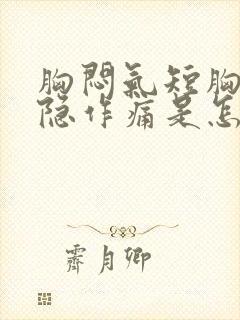 胸闷氣短胸
隐作痛是怎
霽月卿